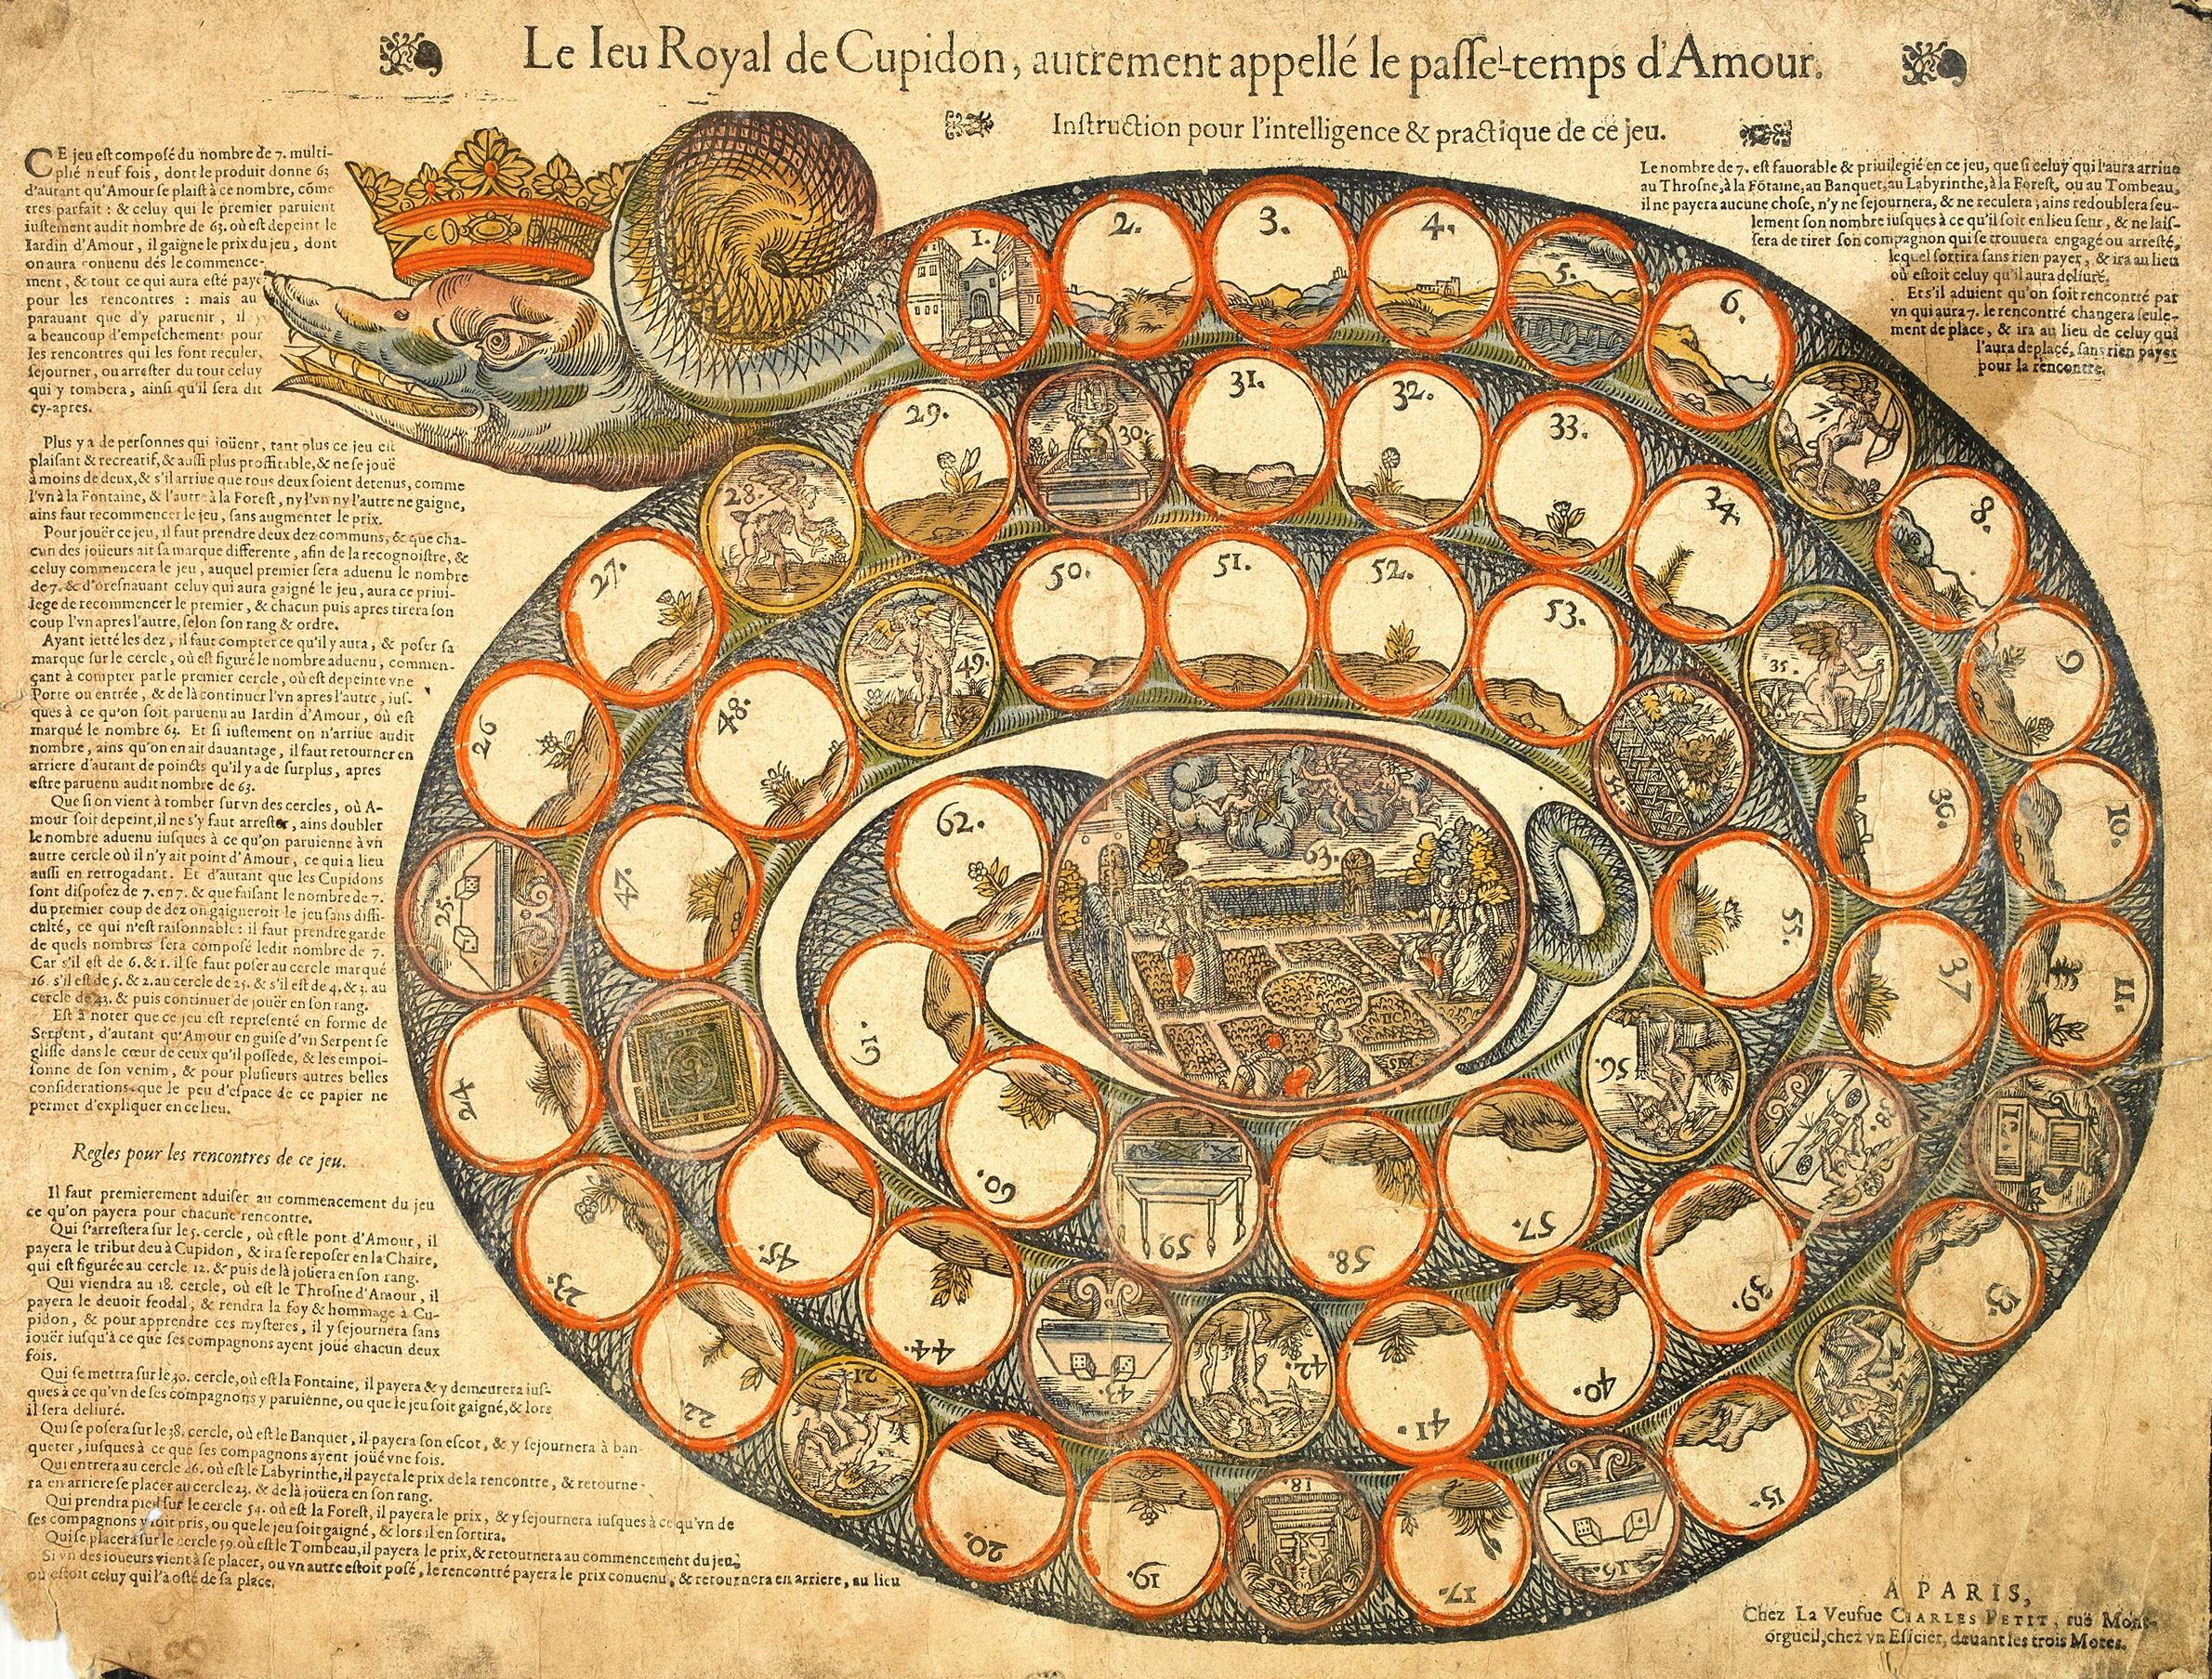 Le Ieu Royal de Cupidon, autrement appellé le paſſe-temps d'Amour.
Inſtruction pour l'intelligence & practique de ce jeu.
CE jeu eſt compoſé du nombre de 7. multi-
plié neuf fois, dont le produit donne 63
d'autant qu'Amour ſe plaiſt à ce nombre, cōme
tres parfait : & celuy qui le premier paruient
iuſtement audit nombre de 63. où eſt depeint le
Iardin d'Amour, il gaigne le prix du jeu, dont
on aura conuenu dés le commence-
ment, & tout ce qui aura eſté payé
pour les rencontres : mais au
parauant que d'y paruenir, il y
a beaucoup d'empeſchements pour
les rencontres qui les font reculer,
ſejourner, ou arreſter du tout celuy
qui y tombera, ainſi qu'il ſera dit
cy-apres.
Plus y a de perſonnes qui joüent, tant plus ce jeu eſt
plaiſant & recreatif, & auſſi plus proffitable, & ne ſe joüe
à moins de deux, & s'il arriue que tous deux ſoient detenus, comme
l'vn à la Fontaine, & l'autre à la Foreſt, ny l'vn ny l'autre ne gaigne,
ains faut recommencer le jeu, ſans augmenter le prix.
Pour joüer ce jeu, il faut prendre deux dez communs, & que cha-
cun des joüeurs ait ſa marque differente, afin de la recognoiſtre, &
celuy commencera le jeu, auquel premier ſera aduenu le nombre
de 7. & d'oreſnauant celuy qui aura gaigné le jeu, aura ce priui-
lege de recommencer le premier, & chacun puis apres tirera ſon
coup l'vn apres l'autre, ſelon ſon rang & ordre.
Ayant ietté les dez, il faut compter ce qu'il y aura, & poſer ſa
marque ſur le cercle, où eſt figuré le nombre aduenu, commen-
çant à compter par le premier cercle, où eſt depeinte vne
Porte ou entrée, & de là continuer l'vn apres l'autre, iuſ-
ques à ce qu'on ſoit paruenu au Iardin d'Amour, où eſt
marqué le nombre 63. Et ſi iuſtement on n'arriue audit
nombre, ains qu'on en ait dauantage, il faut retourner en
arriere d'autant de poincts qu'il y a de ſurplus, apres
eſtre paruenu audit nombre de 63.
Que ſi on vient à tomber ſur vn des cercles, où A-
mour ſoit depeint, il ne s'y faut arreſter, ains doubler
le nombre aduenu iuſques à ce qu'on paruienne à vn
autre cercle où il n'y ait point d'Amour, ce qui a lieu
auſſi en retrogadant. Et d'autant que les Cupidons
ſont diſpoſez de 7. en 7. & que faiſant le nombre de 7.
du premier coup de dez on gaigneroit le jeu ſans diffi-
culté, ce qui n'eſt raiſonnable : il faut prendre garde
de quels nombres ſera compoſé ledit nombre de 7.
Car s'il eſt de 6. & 1. il ſe faut poſer au cercle marqué
16. s'il eſt de 5. & 2. au cercle de 25. & s'il eſt de 4. & 3. au
cercle de 43. & puis continuer de joüer en ſon rang.
Eſt à noter que ce jeu eſt repreſenté en forme de
Serpent, d'autant qu'Amour en guiſe d'vn Serpent ſe
gliſſe dans le cœur de ceux qu'il poſſede, & les empoi-
ſonne de ſon venim, & pour pluſieurs autres belles
conſiderations que le peu d'eſpace de ce papier ne
permet d'expliquer en ce lieu.
Regles pour les rencontres de ce jeu.
Il faut premierement aduiſer au commencement du jeu
ce qu'on payera pour chacune rencontre.
Qui s'arreſtera ſur le 5. cercle, où eſt le pont d'Amour, il
payera le tribut deu à Cupidon, & ira ſe repoſer en la Chaire,
qui eſt figurée au cercle 12. & puis de là joüera en ſon rang.
Qui viendra au 18. cercle, où eſt le Throſne d'Amour, il
payera le deuoir feodal, & rendra la foy & hommage à Cu-
pidon, & pour apprendre ces myſteres, il y ſejournera ſans
joüer iuſqu'à ce que ſes compagnons ayent joüé chacun deux
fois.
Qui ſe mettra ſur le 30. cercle, où eſt la Fontaine, il payera & y demeurera iuſ-
ques à ce qu'vn de ſes compagnons y paruienne, ou que le jeu ſoit gaigné, & lors
il ſera deliuré.
Qui ſe poſera ſur le 38. cercle, où eſt le Banquet, il payera ſon eſcot, & y ſejournera à ban-
queter, iuſques à ce que ſes compagnons ayent joüé vne fois.
Qui entrera au cercle 46. où eſt le Labyrinthe, il payera le prix de la rencontre, & retourne-
ra en arriere ſe placer au cercle 23. & de là joüera en ſon rang.
Qui prendra pied ſur le cercle 54. où eſt la Foreſt, il payera le prix, & y ſejournera iuſques à ce qu'vn de
ſes compagnons y ſoit pris, ou que le jeu ſoit gaigné, & lors il en ſortira.
Qui ſe placera ſur le cercle 59. où eſt le Tombeau, il payera le prix, & retournera au commencement du jeu.
Si vn des joueurs vient à ſe placer, ou vn autre eſtoit poſé, le rencontré payera le prix conuenu, & retournera en arriere, au lieu
où eſtoit celuy qui l'a oſté de ſa place.
Le nombre de 7. eſt fauorable & priuilegié en ce jeu, que ſi celuy qui l'aura arriue
au Throſne, à la Fōtaine, au Banquet, au Labyrinthe, à la Foreſt, ou au Tombeau,
il ne payera aucune choſe, n'y ne ſejournera, & ne reculera ; ains redoublera ſeu-
lement ſon nombre iuſques à ce qu'il ſoit en lieu ſeur, & ne laiſ-
ſera de tirer ſon compagnon qui ſe trouuera engagé ou arreſté,
lequel ſortira ſans rien payer, & ira au lieu
où eſtoit celuy qu'il aura deliuré.
Et s'il aduient qu'on ſoit rencontré par
vn qui aura 7. le rencontré changera ſeule-
ment de place, & ira au lieu de celuy qui
l'aura deplacé, ſans rien payer
pour la rencontre.
1.
2.
3.
4.
5.
6.
7
8.
9
10.
11.
13.
14
15.
16.
17.
18.
19.
20.
21.
22.
23.
24
25.
26
27.
28.
29.
30.
31.
32.
33.
34.
35.
36.
37
38.
39.
40.
41.
42.
43.
44.
45.
47.
48.
49.
50.
51.
52.
53.
54.
55.
56
57.
58.
59
60.
61
62.
63.
A PARIS,
Chez La Veufue CHARLES PETIT, ruë Mont-
orgueil, chez vn Eſpicier, deuant les trois Mores.